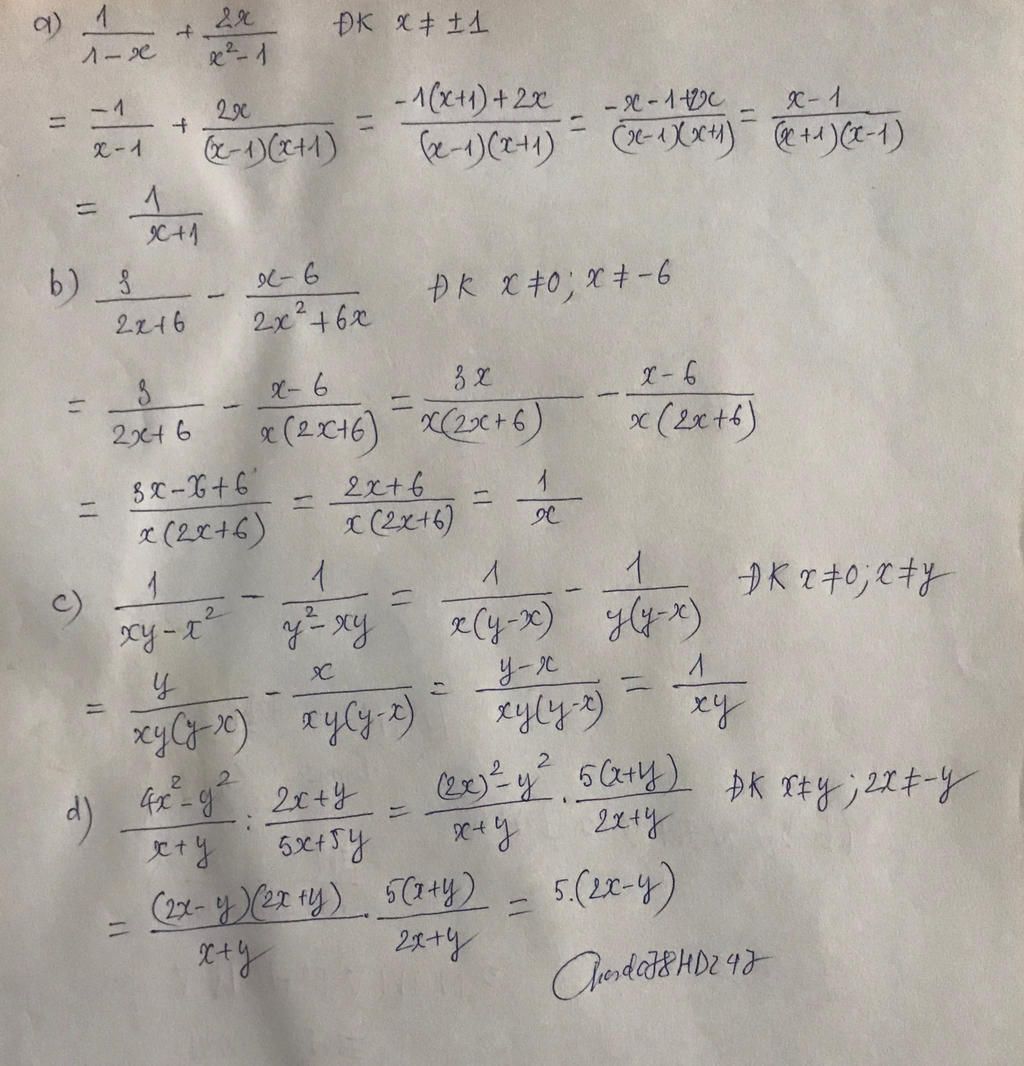 a) \frac{1}{1-x} + \frac{2x}{x^2-1} ĐK x ≠ ±1
= \frac{-1}{x-1} + \frac{2x}{(x-1)(x+1)} = \frac{-1(x+1)+2x}{(x-1)(x+1)} = \frac{-x-1+2x}{(x-1)(x+1)} = \frac{x-1}{(x+1)(x-1)}
= \frac{1}{x+1}
b) \frac{3}{2x+6} - \frac{x-6}{2x^2+6x} ĐK x ≠ 0; x ≠ -6
= \frac{3}{2x+6} - \frac{x-6}{x(2x+6)} = \frac{3x}{x(2x+6)} - \frac{x-6}{x(2x+6)}
= \frac{3x-x+6}{x(2x+6)} = \frac{2x+6}{x(2x+6)} = \frac{1}{x}
c) \frac{1}{xy-x^2} - \frac{1}{y^2-xy} = \frac{1}{x(y-x)} - \frac{1}{y(y-x)} ĐK x ≠ 0; x ≠ y
= \frac{y}{xy(y-x)} - \frac{x}{xy(y-x)} = \frac{y-x}{xy(y-x)} = \frac{1}{xy}
d) \frac{4x^2-y^2}{x+y} : \frac{2x+y}{5x+5y} = \frac{(2x)^2-y^2}{x+y} . \frac{5(x+y)}{2x+y} ĐK x ≠ y; 2x ≠ -y
= \frac{(2x-y)(2x+y)}{x+y} . \frac{5(x+y)}{2x+y} = 5.(2x-y)